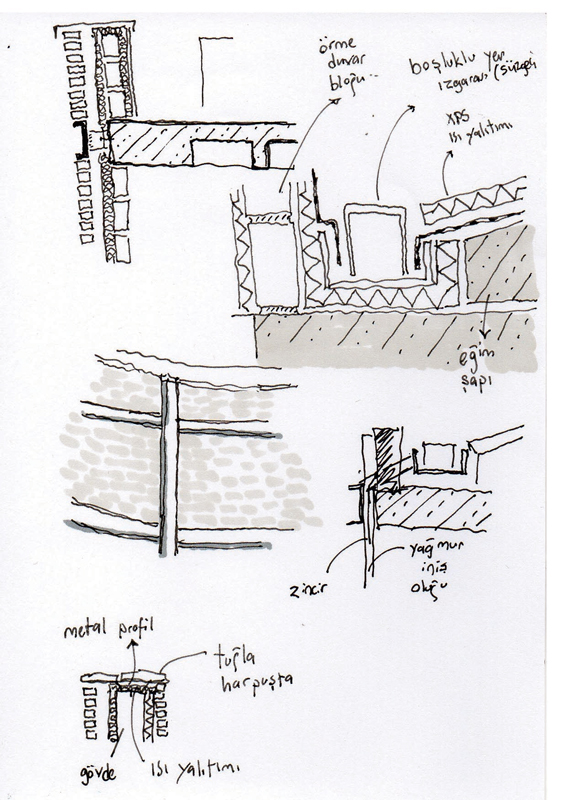 örme
duvar
bloğu
boşluklu yer
ızgarası (süzgeç)
XPS
ısı yalıtımı
eğim
şapı
zincir
yağmur
iniş
oluğu
metal profil
tuğla
harpuşta
gövde
ısı yalıtımı